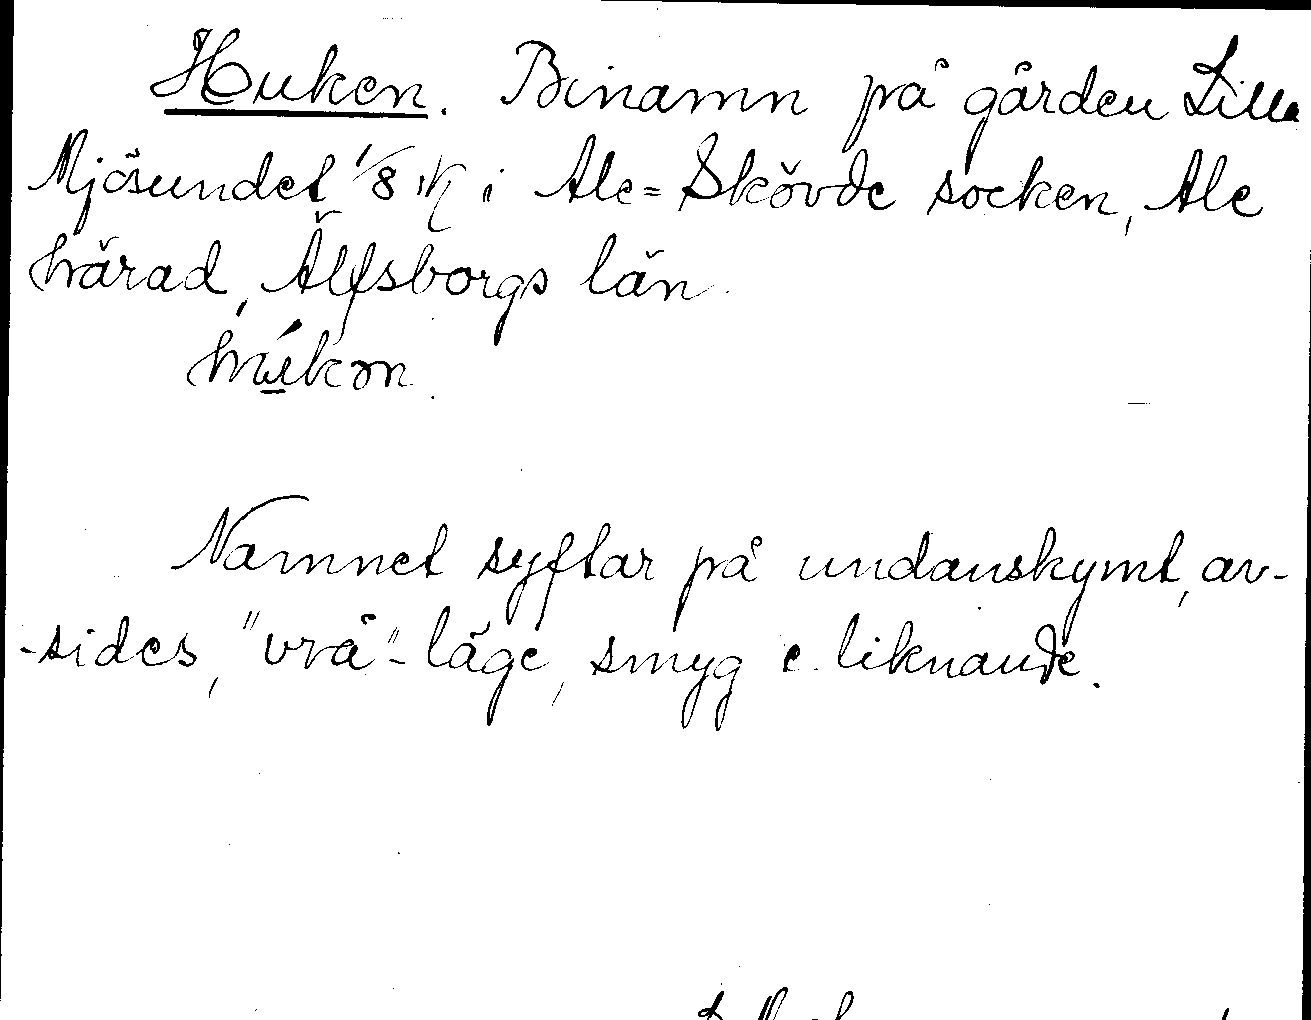 Huken. Binamn på gården Lilla
Mjösundet 1/8 i Ale=Skövde socken, Ale
härad, Älfsborgs län.
Namnet syftar på undanskymt, av-
-sides, "vrå"-läge, smyg e. liknande.